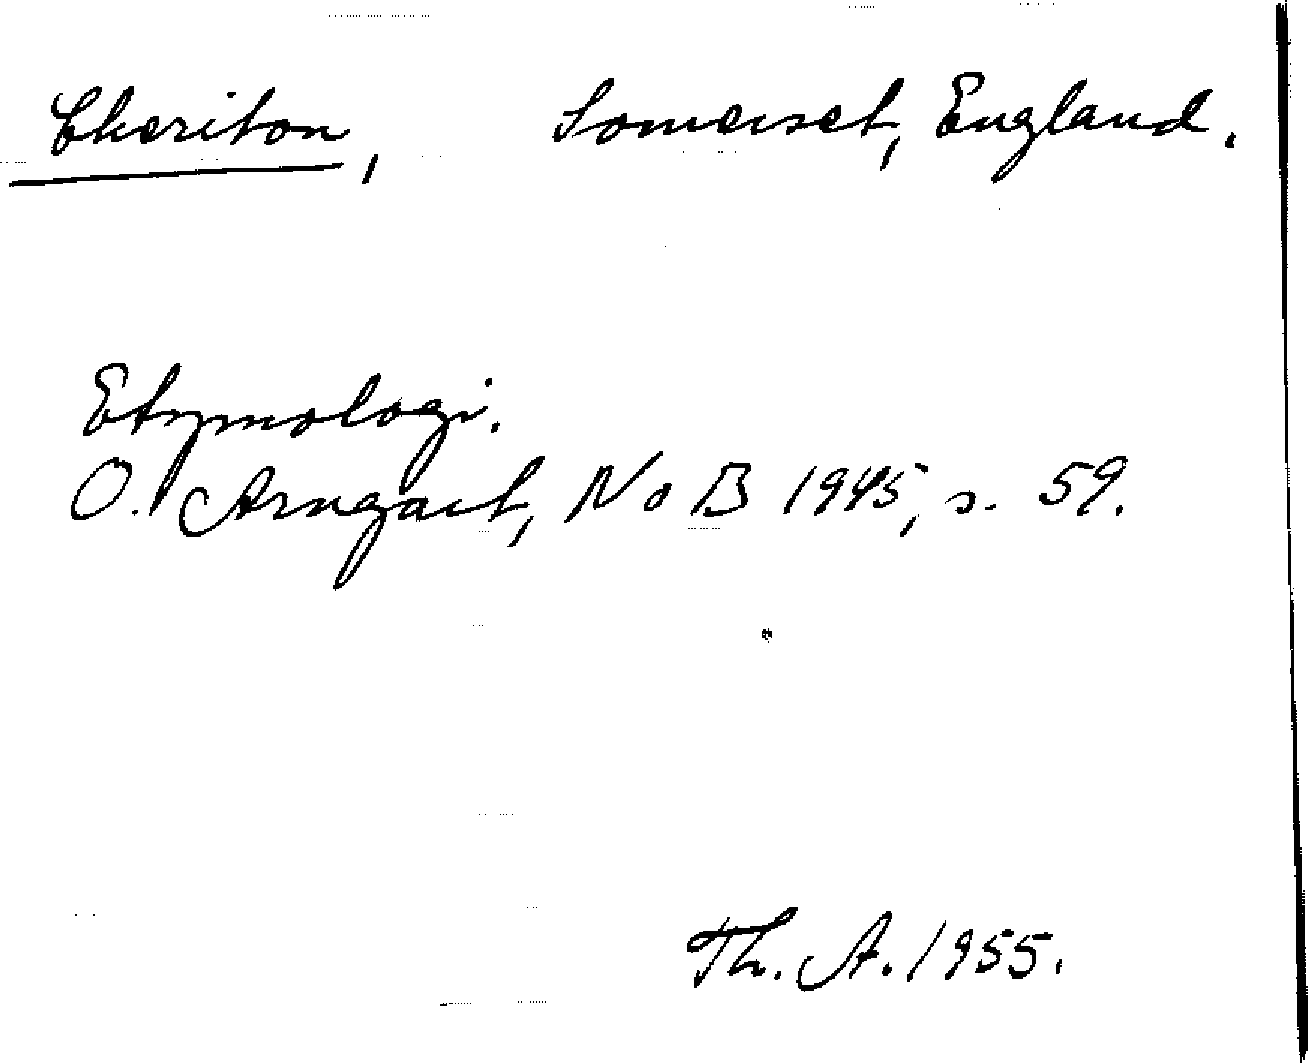 Cheriton, Somerset, England.
Etymologi.
O. Arngart, NoB 1945, s. 59.
Th. A. 1955.